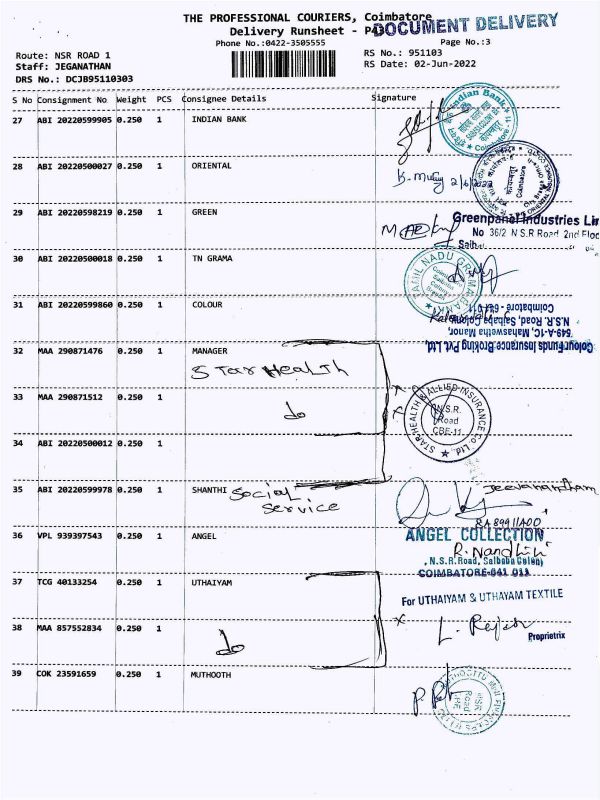 THE PROFESSIONAL COURIERS, Coimbatore
Delivery Runsheet - P43
DOCUMENT DELIVERY
Phone No.:0422-3505555
Page No.:3
Route: NSR ROAD 1
RS No.: 951103
Staff: JEGANATHAN
RS Date: 02-Jun-2022
DRS No.: DCJB95110303
S No Consignment No Weight PCS Consignee Details Signature
27 ABI 20220599905 0.250 1 INDIAN BANK
Indian Bank
Coimbatore - 11
28 ABI 20220500027 0.250 1 ORIENTAL
Coimbatore
29 ABI 20220598219 0.250 1 GREEN
Greenpanel Industries Lim
No 36/2 N S.R Road, 2nd Floo
Saiba
30 ABI 20220500018 0.250 1 TN GRAMA
TAMIL NADU GRAMA BANK
Coimbatore
31 ABI 20220599860 0.250 1 COLOUR
Colour Funds Insurance Broking Pvt. Ltd.
549-A-1C, Mahaswetha Manor,
N.S.R. Road, Saibaba Colony,
Coimbatore - 641 011
32 MAA 290871476 0.250 1 MANAGER
Star Health
33 MAA 290871512 0.250 1
do
STAR HEALTH & ALLIED INSURANCE Co. Ltd.
N.S.R.
Road
CBE-11
34 ABI 20220500012 0.250 1
35 ABI 20220599978 0.250 1 SHANTHI Social
Service
Jeevanantham
36 VPL 939397543 0.250 1 ANGEL
ANGEL COLLECTION
R. Nandhini
N.S.R.Road, Saibaba Colony
COIMBATORE-641 011
37 TCG 40133254 0.250 1 UTHAIYAM
For UTHAIYAM & UTHAYAM TEXTILE
38 MAA 857552834 0.250 1
do
Proprietrix
39 COK 23591659 0.250 1 MUTHOOTH
NSR
Road